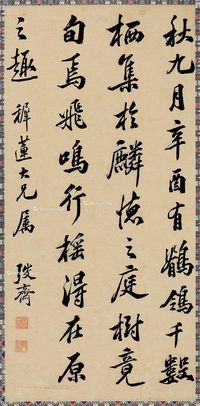 秋九月辛酉有鶺鴒千數
栖集於麟德之庭樹竟
旬焉飛鳴行摇得在原
之趣 蓮大兄屬 弢齋